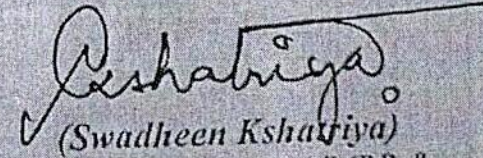 Kshatriya
(Swadheen Kshatriya)